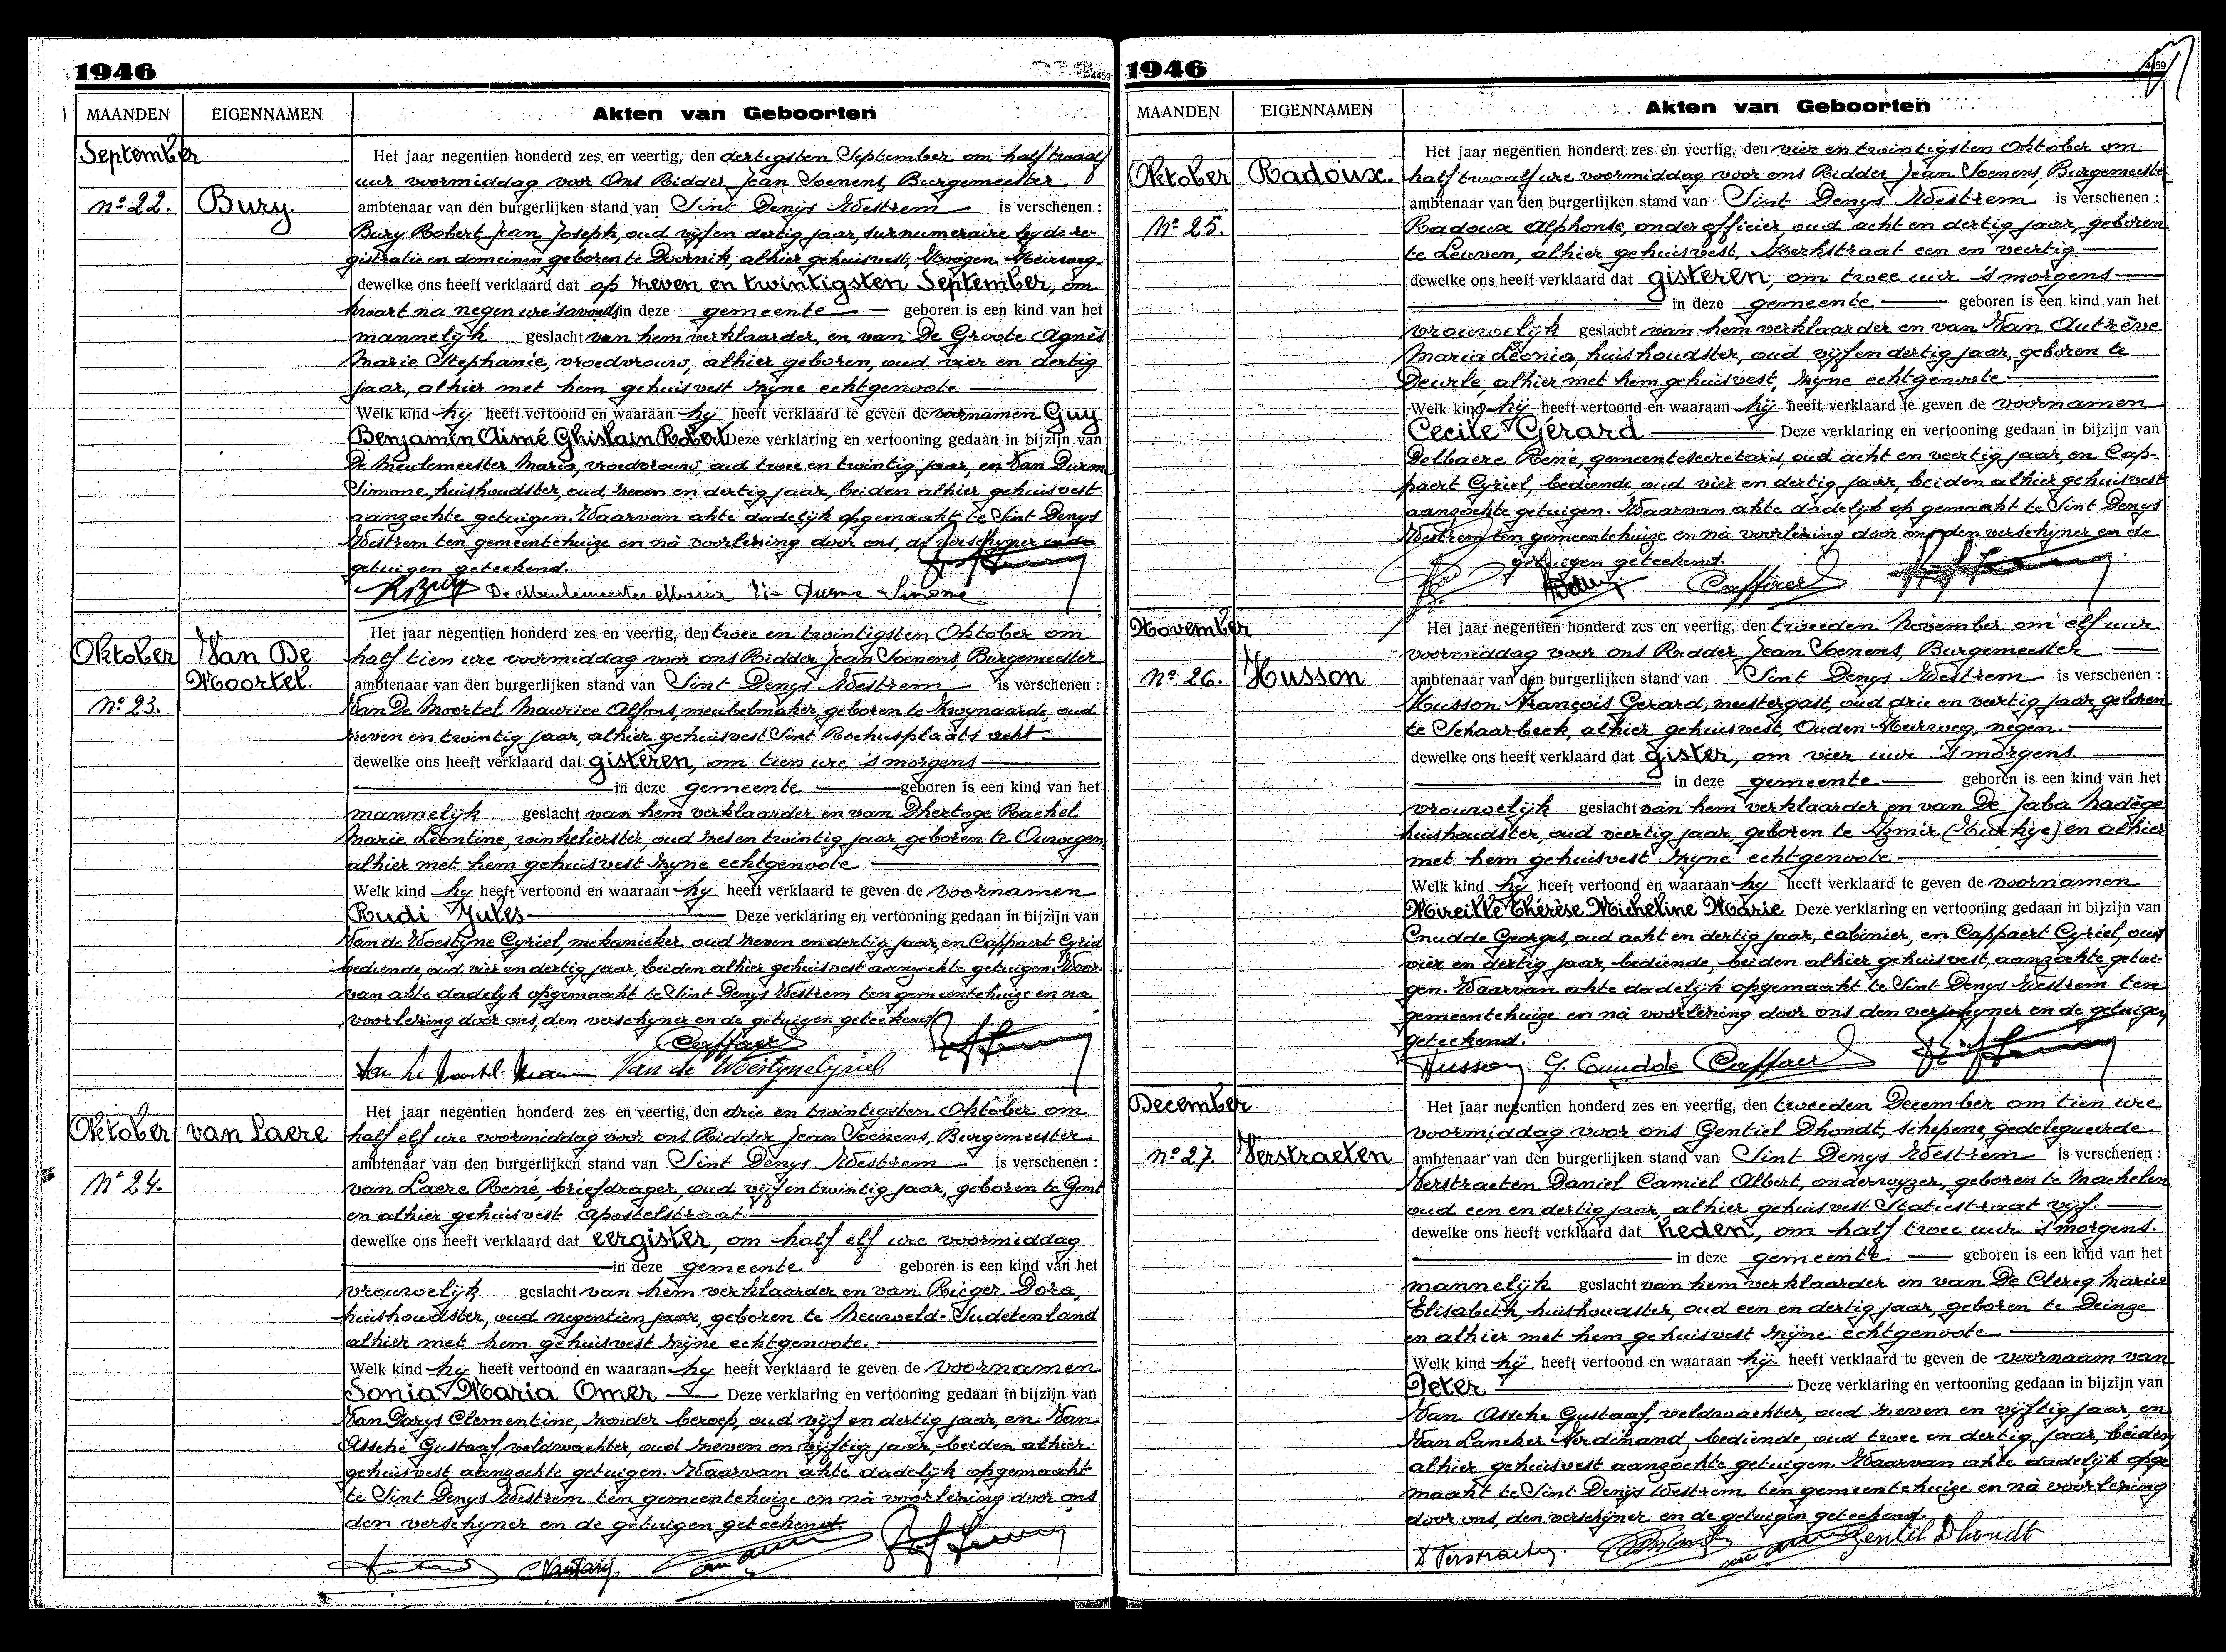 1946
4459
MAANDEN
EIGENNAMEN
Akten van Geboorten
September
Nº 22.
Bury.
Het jaar negentien honderd zes en veertig, den dertigsten September om half twaalf
uur voormiddag voor Ons Ridder Jean Soenens, Burgemeester
ambtenaar van den burgerlijken stand van Sint Denys Westrem is verschenen :
Bury Robert Jean Joseph, oud vijf en dertig jaar, surnumeraire by de re-
gistratie en domeinen geboren te Doornik, alhier gehuisvest, Hoogen Heirweg.
dewelke ons heeft verklaard dat op zeven en twintigsten September, om
kwart na negen ure 's avonds in deze gemeente geboren is een kind van het
mannelijk geslacht van hem verklaarder, en van De Groote Agnès
Marie Stephanie, vroedvrouw, alhier geboren, oud vier en dertig
jaar, alhier met hem gehuisvest zijne echtgenoote
Welk kind hy heeft vertoond en waaraan hy heeft verklaard te geven de voornamen Guy
Benjamin Aimé Ghislain Robert Deze verklaring en vertooning gedaan in bijzijn van
De Meulemeester Maria, vroedvrouw, oud twee en twintig jaar, en Van Durme
Simone, huishoudster, oud zeven en dertig jaar, beiden alhier gehuisvest
aanzochte getuigen. Waarvan akte dadelijk opgemaakt te Sint Denys
Westrem ten gemeentehuize en nà voorlezing door ons, de verschyner en de
getuigen geteekend.
RBury De Meulemeester Maria Durme Simone
Oktober
Nº 23.
Van De
Moortel.
Het jaar negentien honderd zes en veertig, den twee en twintigsten Oktober om
half tien ure voormiddag voor ons Ridder Jean Soenens, Burgemeester
ambtenaar van den burgerlijken stand van Sint Denys Westrem is verschenen :
Van De Moortel Maurice Alfons, meubelmaker, geboren te Zwynaarde, oud
zeven en twintig jaar, alhier gehuisvest Sint Rochusplaats acht
dewelke ons heeft verklaard dat gisteren, om tien ure 's morgens
in deze gemeente geboren is een kind van het
mannelijk geslacht van hem verklaarder en van Dhertoge Rachel
Marie Léontine, winkelierster, oud zes en twintig jaar, geboren te Ouwegem
alhier met hem gehuisvest zyne echtgenoote
Welk kind hy heeft vertoond en waaraan hy heeft verklaard te geven de voornamen
Rudi Jules Deze verklaring en vertooning gedaan in bijzijn van
Van de Woestyne Cyriel, mekanieker oud zeven en dertig jaar, en Cappaert Cyriel
bediende, oud vier en dertig jaar, beiden alhier gehuisvest aanzochte getuigen. Waar-
van akte dadelyk opgemaakt te Sint Denys Westrem ten gemeentehuize en na
voorlezing door ons, den verschyner en de getuigen geteekend
Cappaert
Van de Woestyne Cyriel
Oktober
Nº 24.
van Laere
Het jaar negentien honderd zes en veertig, den drie en twintigsten Oktober om
half elf ure voormiddag voor ons Ridder Jean Soenens, Burgemeester
ambtenaar van den burgerlijken stand van Sint Denys Westrem is verschenen :
van Laere René, briefdrager, oud vijf en twintig jaar, geboren te Gent
en alhier gehuisvest Apostelstraat.
dewelke ons heeft verklaard dat eergister, om half elf ure voormiddag
in deze gemeente geboren is een kind van het
vrouwelijk geslacht van hem verklaarder en van Rieger Dora,
huishoudster, oud negentien jaar, geboren te Neuweld-Sudetenland
alhier met hem gehuisvest zijne echtgenoote.
Welk kind hy heeft vertoond en waaraan hy heeft verklaard te geven de voornamen
Sonia Maria Omer Deze verklaring en vertooning gedaan in bijzijn van
Van Parys Clementine, zonder beroep, oud vijf en dertig jaar, en Van
Assche Gustaaf, veldwachter, oud zeven en vijftig jaar, beiden alhier
gehuisvest aanzochte getuigen. Waarvan akte dadelijk opgemaakt
te Sint Denys Westrem ten gemeentehuize en nà voorlezing door ons
den verschyner en de getuigen geteekend.
1946
4459
MAANDEN
EIGENNAMEN
Akten van Geboorten
Oktober
Nº 25.
Radoux.
Het jaar negentien honderd zes en veertig, den vier en twintigsten Oktober om
half twaalf ure voormiddag voor ons Ridder Jean Soenens, Burgemeester
ambtenaar van den burgerlijken stand van Sint Denys Westrem is verschenen :
Radoux Alphonse, onderofficier, oud acht en dertig jaar, geboren
te Leuven, alhier gehuisvest, Kerkstraat een en veertig.
dewelke ons heeft verklaard dat gisteren, om twee uur 's morgens
in deze gemeente geboren is een kind van het
vrouwelijk geslacht van hem verklaarder en van Van Autrève
Maria Léonia, huishoudster, oud vijf en dertig jaar, geboren te
Deurle, alhier met hem gehuisvest, zijne echtgenoote
Welk kind hij heeft vertoond en waaraan hij heeft verklaard te geven de voornamen
Cecile Gerard Deze verklaring en vertooning gedaan in bijzijn van
Delbaere René, gemeentesecretaris, oud acht en veertig jaar, en Cap-
paert Cyriel, bediende, oud vier en dertig jaar, beiden alhier gehuisvest
aanzochte getuigen. Waarvan akte dadelijk op gemaakt te Sint Denys
Westrem ten gemeentehuize en nà voorlezing door ons den verschyner en de
getuigen geteekend.
Cappaert
November
Nº 26.
Husson
Het jaar negentien honderd zes en veertig, den tweeden November om elf uur
voormiddag voor ons Ridder Jean Soenens, Burgemeester
ambtenaar van den burgerlijken stand van Sint Denys Westrem is verschenen :
Husson François Gerard, meestergast, oud drie en veertig jaar geboren
te Schaarbeek, alhier gehuisvest, Ouden Heirweg, negen.
dewelke ons heeft verklaard dat gister, om vier uur 's morgens.
in deze gemeente geboren is een kind van het
vrouwelijk geslacht van hem verklaarder en van De Jaba Nadège
huishoudster, oud veertig jaar, geboren te Izmir (Turkye) en alhier
met hem gehuisvest zyne echtgenoote.
Welk kind hy heeft vertoond en waaraan hy heeft verklaard te geven de voornamen
Mireille Thérèse Micheline Marie Deze verklaring en vertooning gedaan in bijzijn van
Cnudde Georges, oud acht en dertig jaar, cabinier, en Cappaert Cyriel, oud
vier en dertig jaar, bediende, beiden alhier gehuisvest, aanzochte getui-
gen. Waarvan akte dadelijk opgemaakt te Sint Denys Westrem ten
gemeentehuize en nà voorlezing door ons den verschyner en de getuigen
geteekend.
Husson G. Cnudde Cappaert
December
Nº 27.
Verstraeten
Het jaar negentien honderd zes en veertig, den tweeden December om tien ure
voormiddag voor ons Gentiel Dhondt, schepene, gedelegueerde
ambtenaar van den burgerlijken stand van Sint Denys Westrem is verschenen :
Verstraeten Daniel Camiel Albert, onderwyzer, geboren te Machelen
oud een en dertig jaar, alhier gehuisvest Statiestraat vijf.
dewelke ons heeft verklaard dat heden, om half twee uur 's morgens.
in deze gemeente geboren is een kind van het
mannelijk geslacht van hem verklaarder en van De Clercq Maria
Elisabeth, huishoudster, oud een en dertig jaar, geboren te Deinze
en alhier met hem gehuisvest zijne echtgenoote
Welk kind hij heeft vertoond en waaraan hij heeft verklaard te geven de voornaam van
Peter Deze verklaring en vertooning gedaan in bijzijn van
Van Assche Gustaaf, veldwachter, oud zeven en vijftig jaar, en
Van Lancker Ferdinand, bediende, oud twee en dertig jaar, beiden
alhier gehuisvest aanzochte getuigen. Waarvan akte dadelijk opge
maakt te Sint Denijs Westrem ten gemeentehuize en nà voorlezing
door ons, den verschijner en de getuigen geteekend.
D Verstraeten. Gentil Dhondt